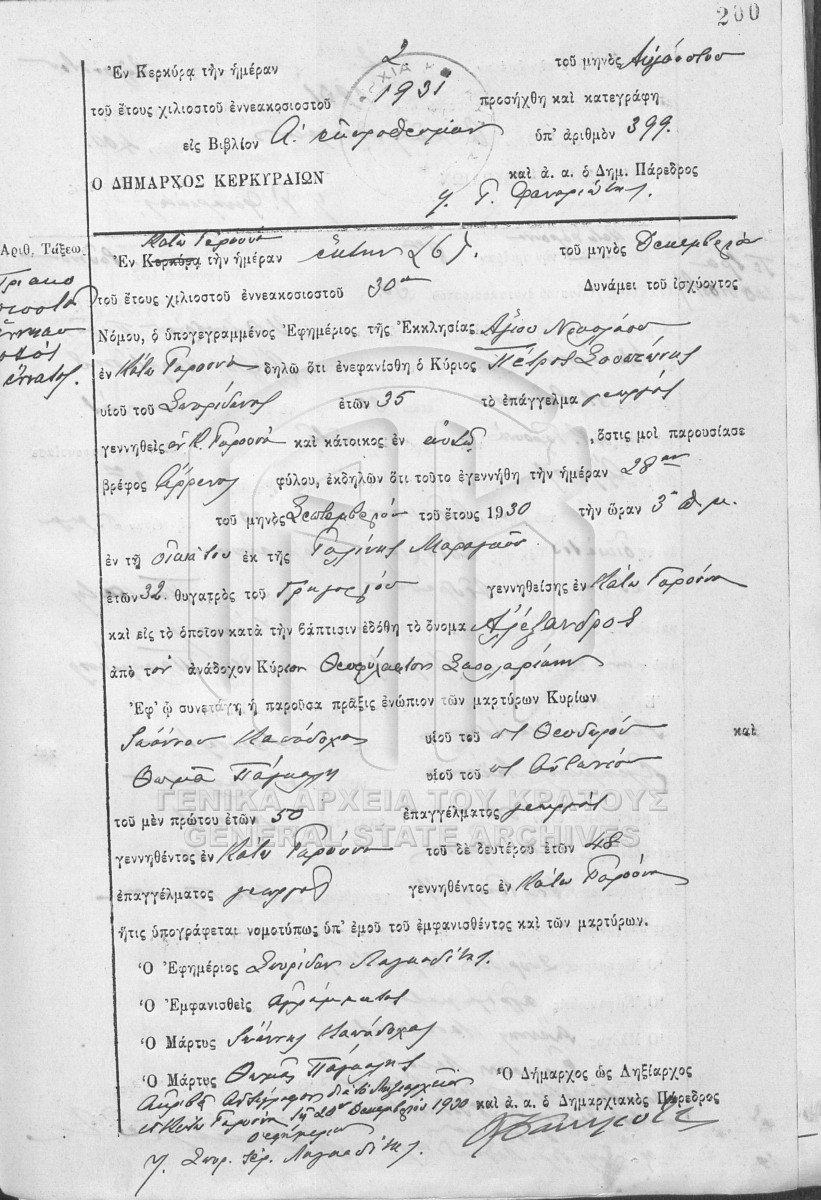 200
Ἐν Κερκύρᾳ τὴν ἡμέραν 2 τοῦ μηνὸς Αὐγούστου
τοῦ ἔτους χιλιοστοῦ ἐννεακοσιοστοῦ 1931 προσήχθη καὶ κατεγράφη
εἰς Βιβλίον Α. ἐκπροθέσμων ὑπ' ἀριθμὸν 399.
Ο ΔΗΜΑΡΧΟΣ ΚΕΡΚΥΡΑΙΩΝ καὶ ἀ. α. ὁ Δημ. Πάρεδρος
Γ. Φαναριώτης
Ἀριθ. Τάξεω
Τριακο
σιοστὸ
ἐννενηκο
στὸς
ἔννατος.
Κάτω Γαρούνα
Ἐν Κερκύρᾳ τὴν ἡμέραν ἕκτην (6). τοῦ μηνὸς Δεκεμβρίου
τοῦ ἔτους χιλιοστοῦ ἐννεακοσιοστοῦ 30ου Δυνάμει τοῦ ἰσχύοντος
Νόμου, ὁ ὑπογεγραμμένος Ἐφημέριος τῆς Ἐκκλησίας Ἁγίου Νικολάου
ἐν Κάτω Γαρούνᾳ δηλῶ ὅτι ἐνεφανίσθη ὁ Κύριος Πέτρος
υἱοῦ τοῦ Σπυρίδωνος ἐτῶν 35 τὸ ἐπάγγελμα γεωργός
γεννηθεὶς ἐν Κ. Γαρούνᾳ καὶ κάτοικος ἐν αὐτῷ, ὅστις μοι παρουσίασε
βρέφος ἄρρενος φύλου, ἐκδηλῶν ὅτι τοῦτο ἐγεννήθη τὴν ἡμέραν 28ην
τοῦ μηνὸς Σεπτεμβρίου τοῦ ἔτους 1930 τὴν ὥραν 3 π. μ.
ἐν τῇ οἰκίᾳ του ἐκ τῆς Γαλήνης
ἐτῶν 32 θυγατρὸς τοῦ Γρηγορίου γεννηθείσης ἐν Κάτω Γαρούνᾳ
καὶ εἰς τὸ ὁποῖον κατὰ τὴν βάπτισιν ἐδόθη τὸ ὄνομα Ἀλέξανδρος
ἀπὸ τὸν ἀνάδοχον Κύριον Θεοφύλακτον
Ἐφ' ᾧ συνετάγη ἡ παροῦσα πρᾶξις ἐνώπιον τῶν μαρτύρων Κυρίων
Ἰωάννου Καπάδοχος υἱοῦ τοῦ Θεοδώρου καὶ
Θωμᾶ Πάγκαλη υἱοῦ τοῦ Ἀντωνίου
ΓΕΝΙΚΑ ΑΡΧΕΙΑ ΤΟΥ ΚΡΑΤΟΥΣ
τοῦ μὲν πρώτου ἐτῶν 50 ἐπαγγέλματος γεωργός
GENERAL STATE ARCHIVES
γεννηθέντος ἐν Κάτω Γαρούνᾳ τοῦ δὲ δευτέρου ἐτῶν 48
ἐπαγγέλματος γεωργός γεννηθέντος ἐν Κάτω Γαρούνᾳ
ἥτις ὑπογράφεται νομοτύπως ὑπ' ἐμοῦ τοῦ ἐμφανισθέντος καὶ τῶν μαρτύρων.
Ὁ Ἐφημέριος Σπυρίδων Λαγκαδίτης.
Ὁ Ἐμφανισθεὶς ἀγράμματος
Ὁ Μάρτυς Ἰωάννης Καπάδοχος
Ὁ Μάρτυς Θωμᾶς Πάγκαλης Ὁ Δήμαρχος ὡς Ληξίαρχος
Ἀκριβὲς Ἀντίγραφον διὰ τὸ Ληξιαρχεῖον
Κάτω Γαρούνᾳ τῇ 20 Δεκεμβρίου 1930 καὶ ἀ. α. ὁ Δημαρχιακὸς Πάρεδρος
ὁ ἐφημέριος
Σπυρ. ἱερ. Λαγκαδίτης.